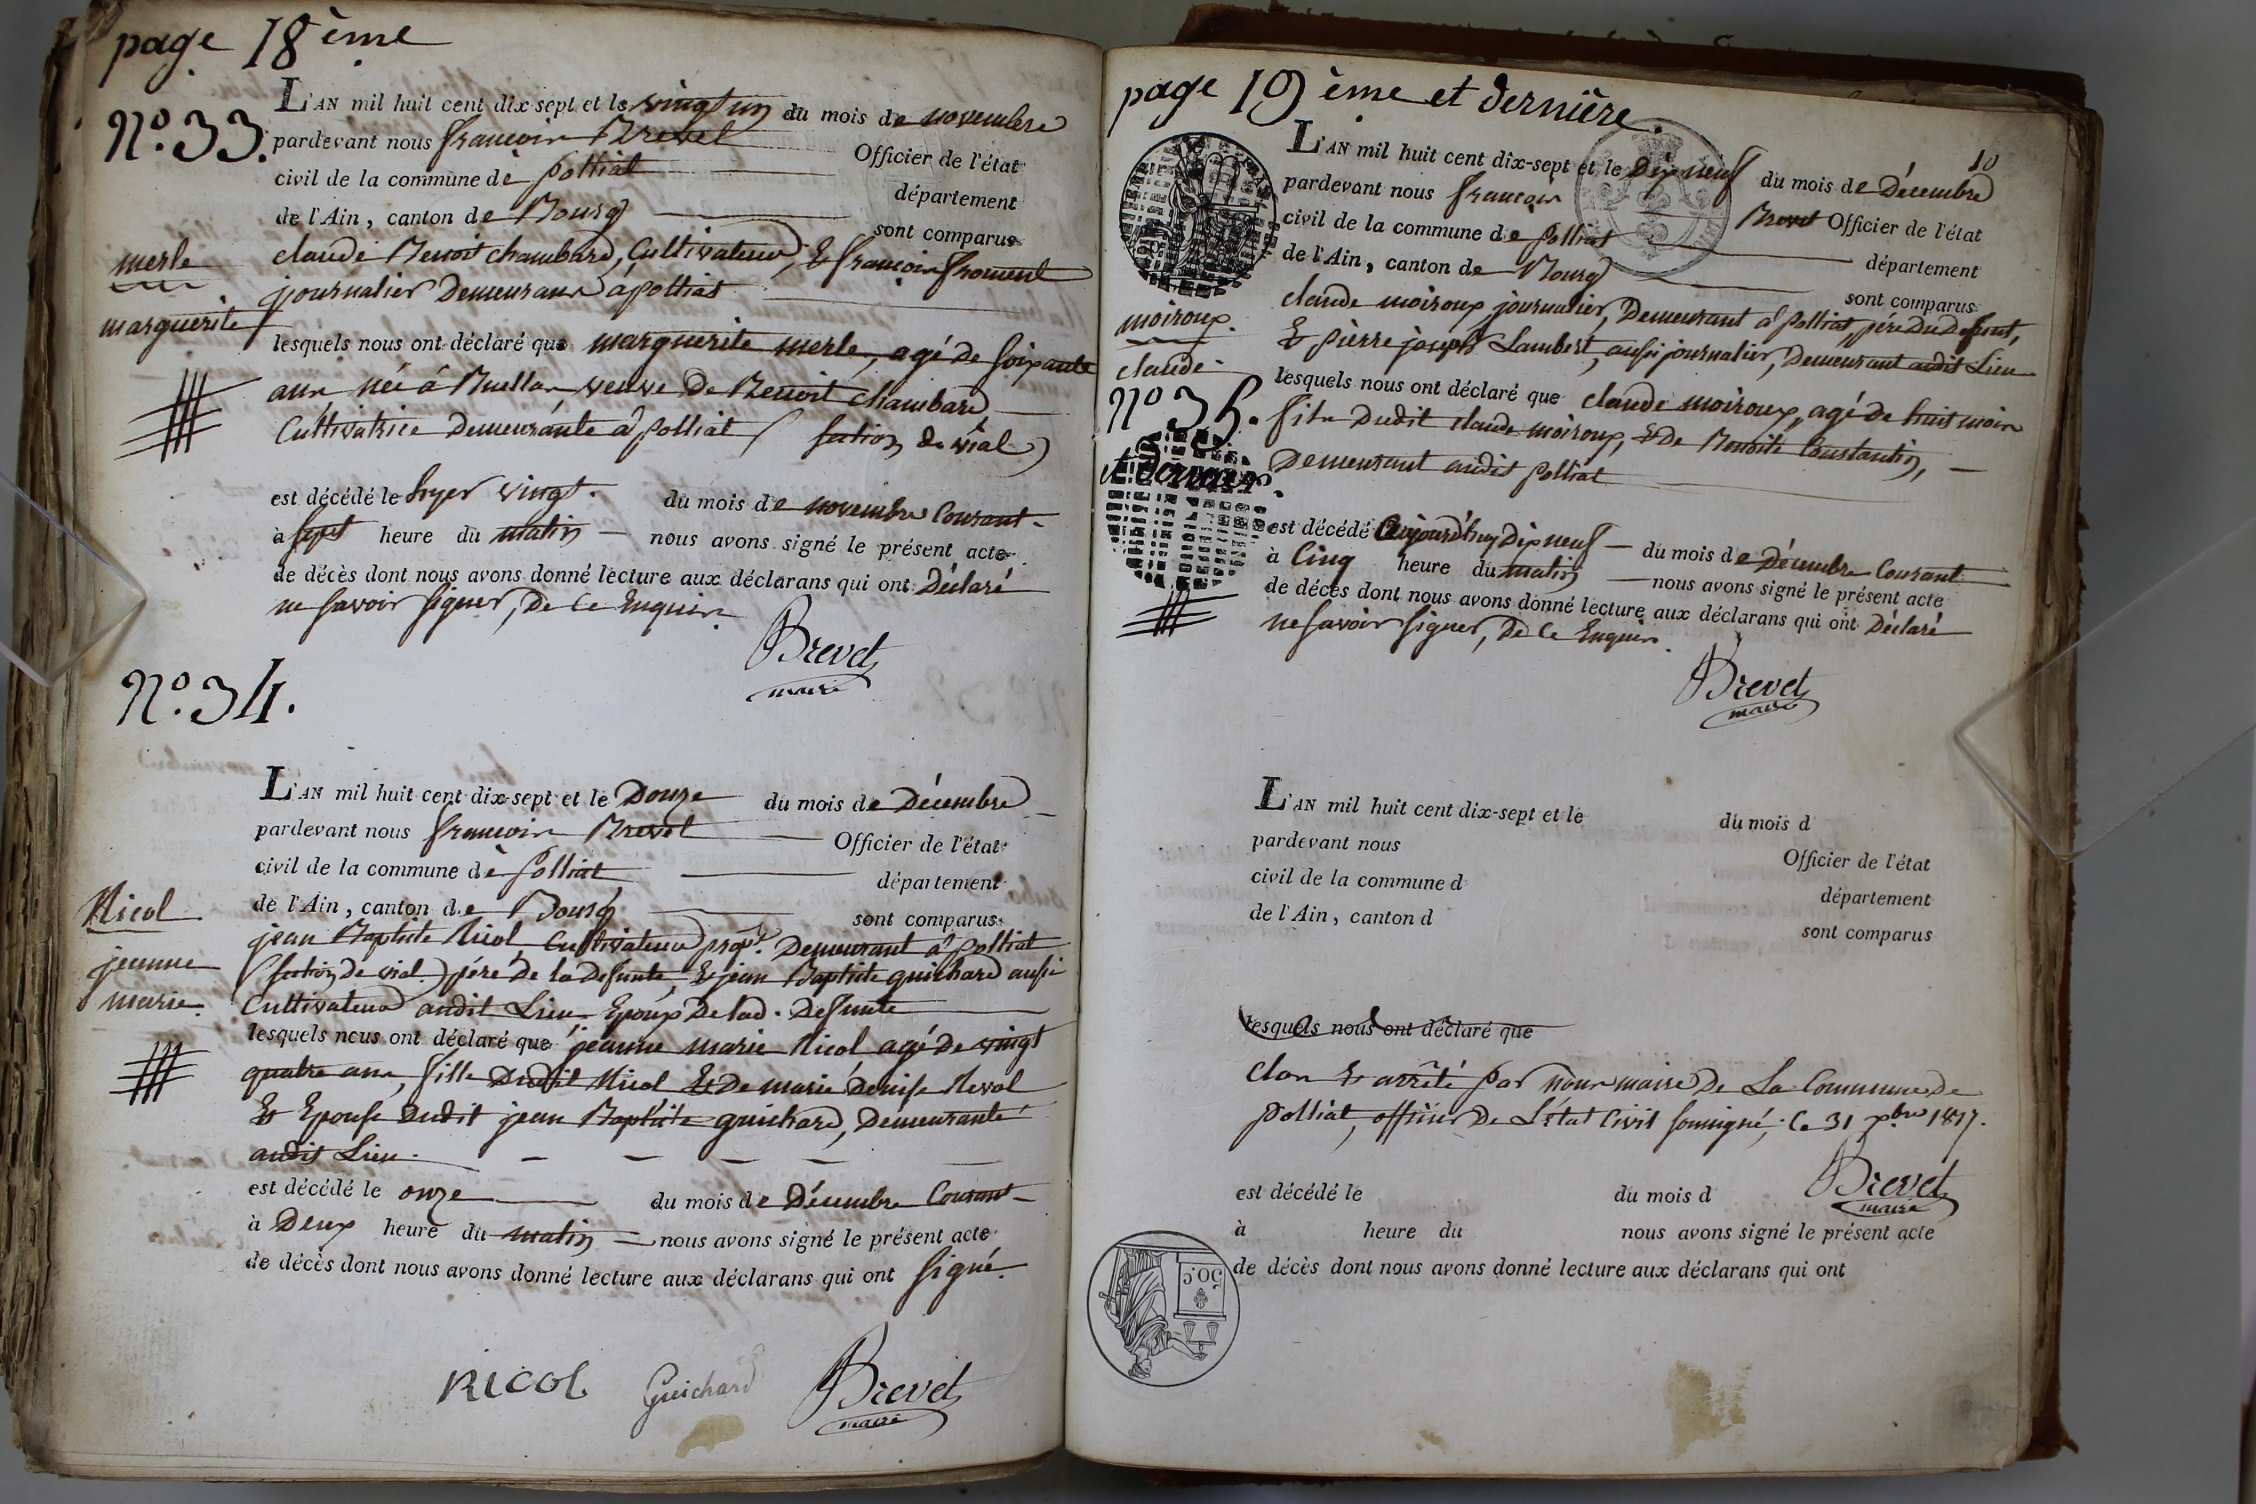 page 18ème
N.º 33.
L'AN mil huit cent dix-sept et le vingt un du mois de novembre
pardevant nous françois Brevet Officier de l'état
civil de la commune de polliat département
de l'Ain, canton de Bourg sont comparus
merle
marguerite
claude Benoit chambard, Cultivateur, & françois froment
journalier Demeurans à polliat
lesquels nous ont déclaré que marguerite merle, agé de soixante
ans née à Buellas, veuve de Benoit chambard
Cultivatrice demeurante à polliat (section de vial)
est décédé le hyer vingt. du mois de novembre Courant
à sept heure du matin nous avons signé le présent acte
de décès dont nous avons donné lecture aux déclarans qui ont Déclaré
ne savoir signer, de ce Enquis.
Brevet
maire
N.º 34.
L'AN mil huit cent dix-sept et le Douze du mois de Décembre
pardevant nous françois Brevet Officier de l'état
civil de la commune de polliat département
de l'Ain, canton de Bourg sont comparus
Nicol
jeanne
marie.
jean Baptiste Nicol Cultivateur prop.re Demeurant à polliat
(section de vial) père de la defunte, & jean Baptiste guichard aussi
Cultivateur audit Lieu Epoux de lad. defunte
lesquels nous ont déclaré que jeanne marie Nicol agé de vingt
quatre ans, fille dudit Nicol & de marie denise Nevol
& Epouse dudit jean Baptiste guichard, Demeurante
audit Lieu.
est décédé le onze du mois de Décembre Courant
à Deux heure du matin nous avons signé le présent acte
de décès dont nous avons donné lecture aux déclarans qui ont signé.
NICOL Guichard Brevet
maire
page 19ème et dernière.
10
L'AN mil huit cent dix-sept et le Dix neuf du mois de Décembre
pardevant nous françois Brevet Officier de l'état
civil de la commune de polliat département
de l'Ain, canton de Bourg sont comparus
moiroux.
claude
N.º 35.
et dernier.
claude moiroux journalier, Demeurant à polliat, père du defunt,
& pierre joseph Lambert, aussi journalier, Demeurant audit Lieu
lesquels nous ont déclaré que claude moiroux, agé de huit mois
fils dudit claude moiroux, & de Benoite Constantin,
Demeurant audit polliat
est décédé aujourd'huy Dix neuf du mois de Décembre Courant
à Cinq heure du matin nous avons signé le présent acte
de décès dont nous avons donné lecture aux déclarans qui ont Déclaré
ne savoir signer, de ce Enquis.
Brevet
maire
L'AN mil huit cent dix-sept et le du mois d
pardevant nous Officier de l'état
civil de la commune d département
de l'Ain, canton d sont comparus
lesquels nous ont déclaré que
clos & arrêté par nous maire de La Commune de
polliat, officier de L'état Civil soussigné, ce 31 xbre 1817.
Brevet
maire
est décédé le du mois d
à heure du nous avons signé le présent acte
de décès dont nous avons donné lecture aux déclarans qui ont
50.C